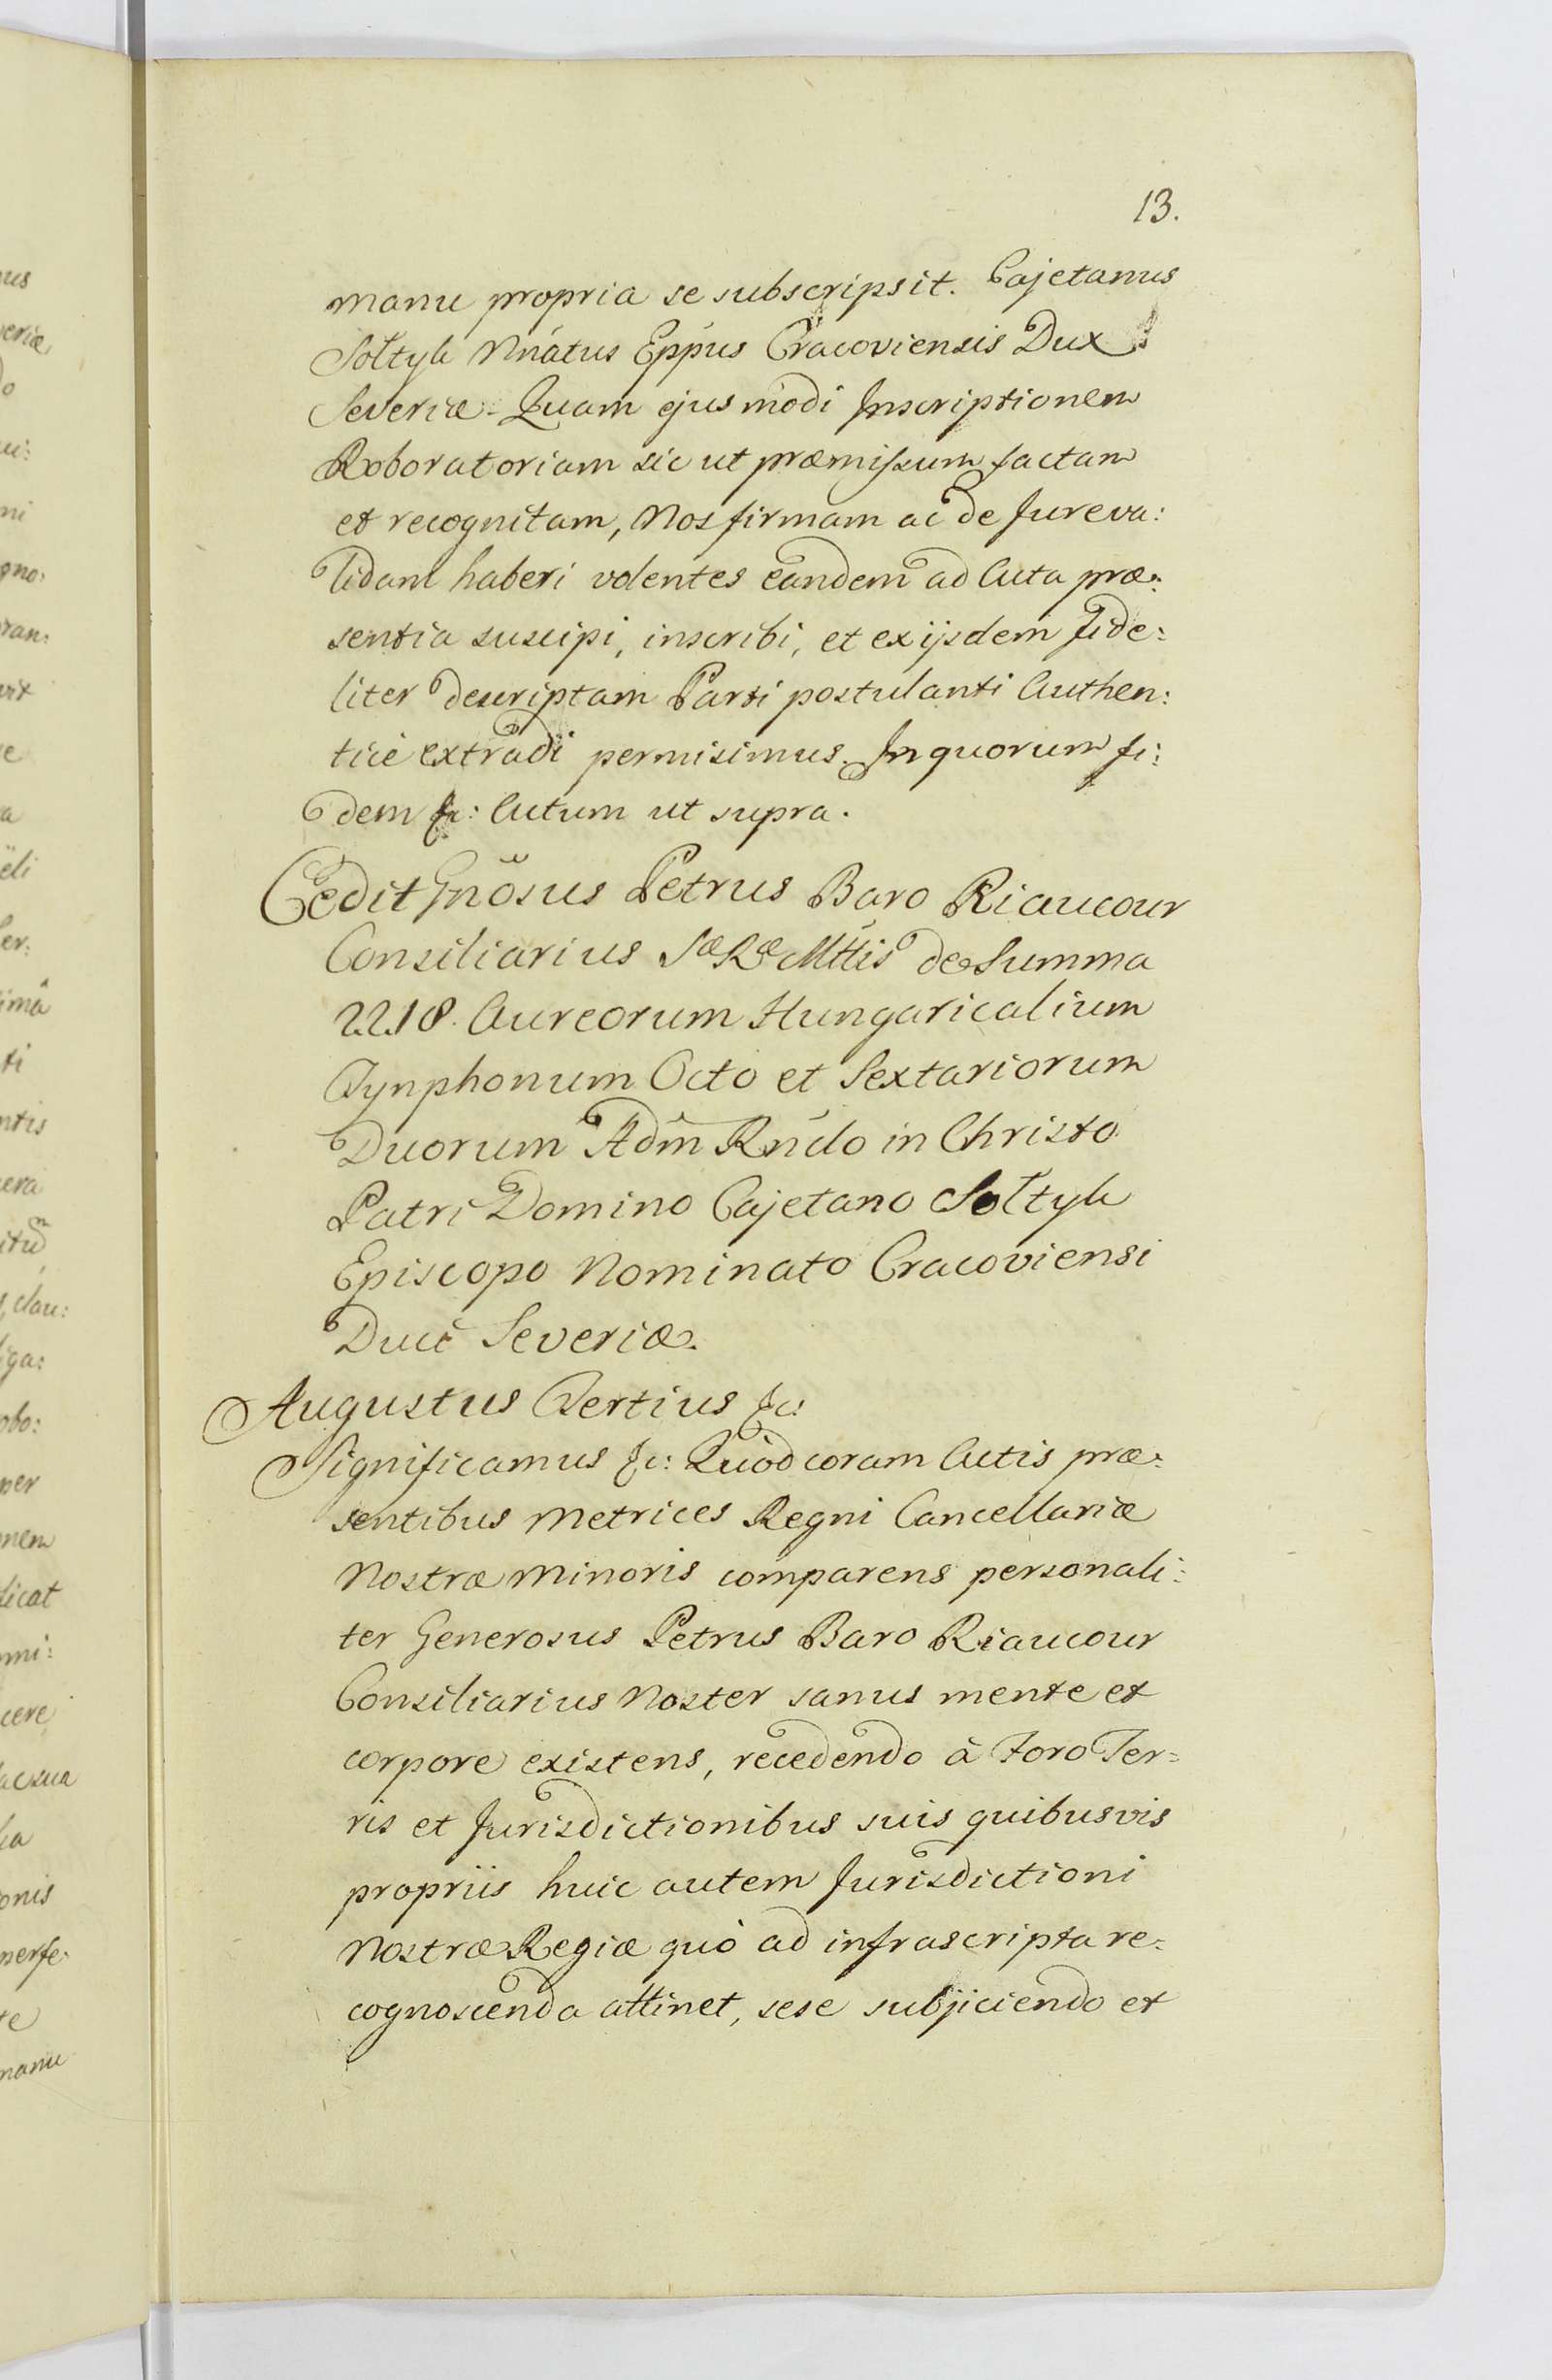 13.
manu propria se subscripsit. Cajetanus
Sołtyk Nnatus Eppus Cracoviensis Dux
Severiæ. Quam ejusmodi Inscriptionem
Roboratoriam sic ut præmissum factam
et recognitam, Nos firmam ac de Jure va:
lidam haberi volentes eandem ad Acta præ:
sentia suscipi, inscribi, et ex ijsdem fide:
liter descriptam Parti postulanti Authen:
ticè extradi permisimus. In quorum fi:
dem &c: Actum ut supra.
Cedit Gnosus Petrus Baro Riaucour
Consiliarius Sæ Ræ Mttis de Summa
2218. Aureorum Hungaricalium
Tynphonum Octo et Sextariorum
Duorum Adm Rndo in Christo
Patri Domino Cajetano Sołtyk
Episcopo Nominato Cracoviensi
Duci Severiæ.
Augustus Tertius &c:
Significamus &c: Quod coram Actis præ:
sentibus Metrices Regni Cancellariæ
Nostræ Minoris comparens personali:
ter Generosus Petrus Baro Riaucour
Consiliarius Noster sanus mente et
corpore existens, recedendo à Foro Ter=
ris et Jurisdictionibus suis quibusvis
propriis huic autem Jurisdictioni
Nostræ Regiæ quò ad infrascripta re:
cognoscenda attinet, sese subjiciendo et